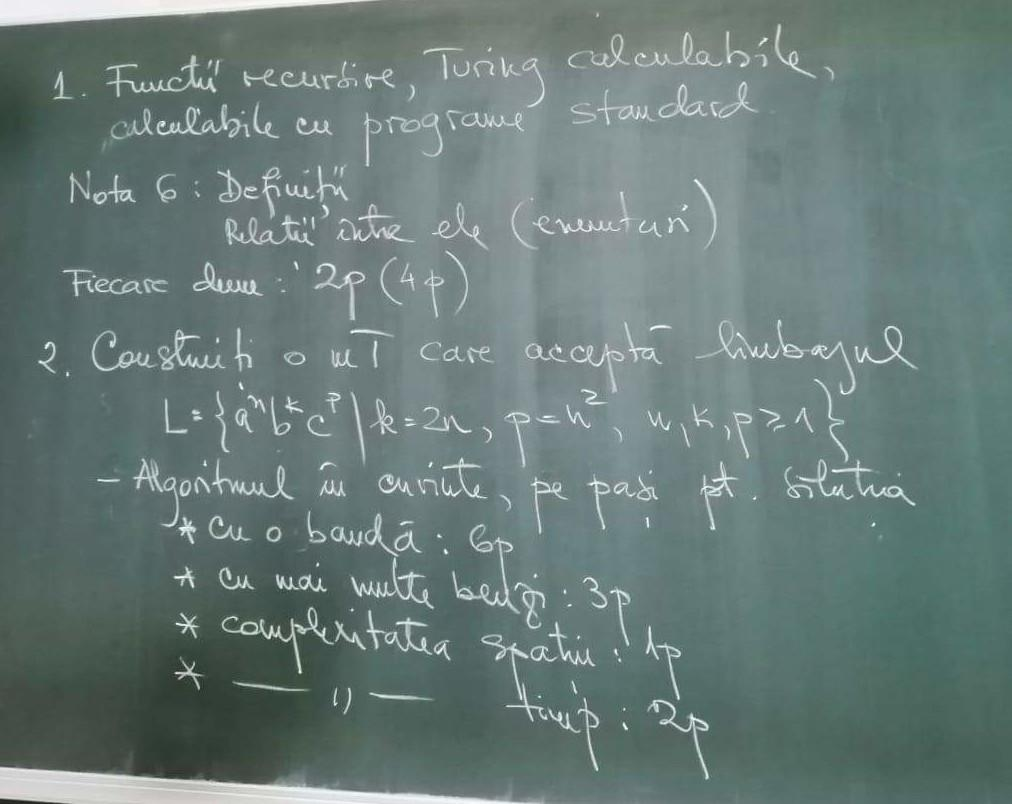 1. Funcții recursive, Turing calculabile,
calculabile cu programe standard
Nota 6: Definiții
Relații între ele (enunțuri)
Fiecare dem: 2p (4p)
2. Construiți o mT care acceptă limbajul
L = {aⁿbᵏcᵖ | k=2n, p=n², n,k,p≥1}
- Algoritmul în cuvinte, pe pași pt. situția
* cu o bandă: 6p
* cu mai multe benzi: 3p
* complexitatea spațiu: 1p
* —— " —— timp: 2p